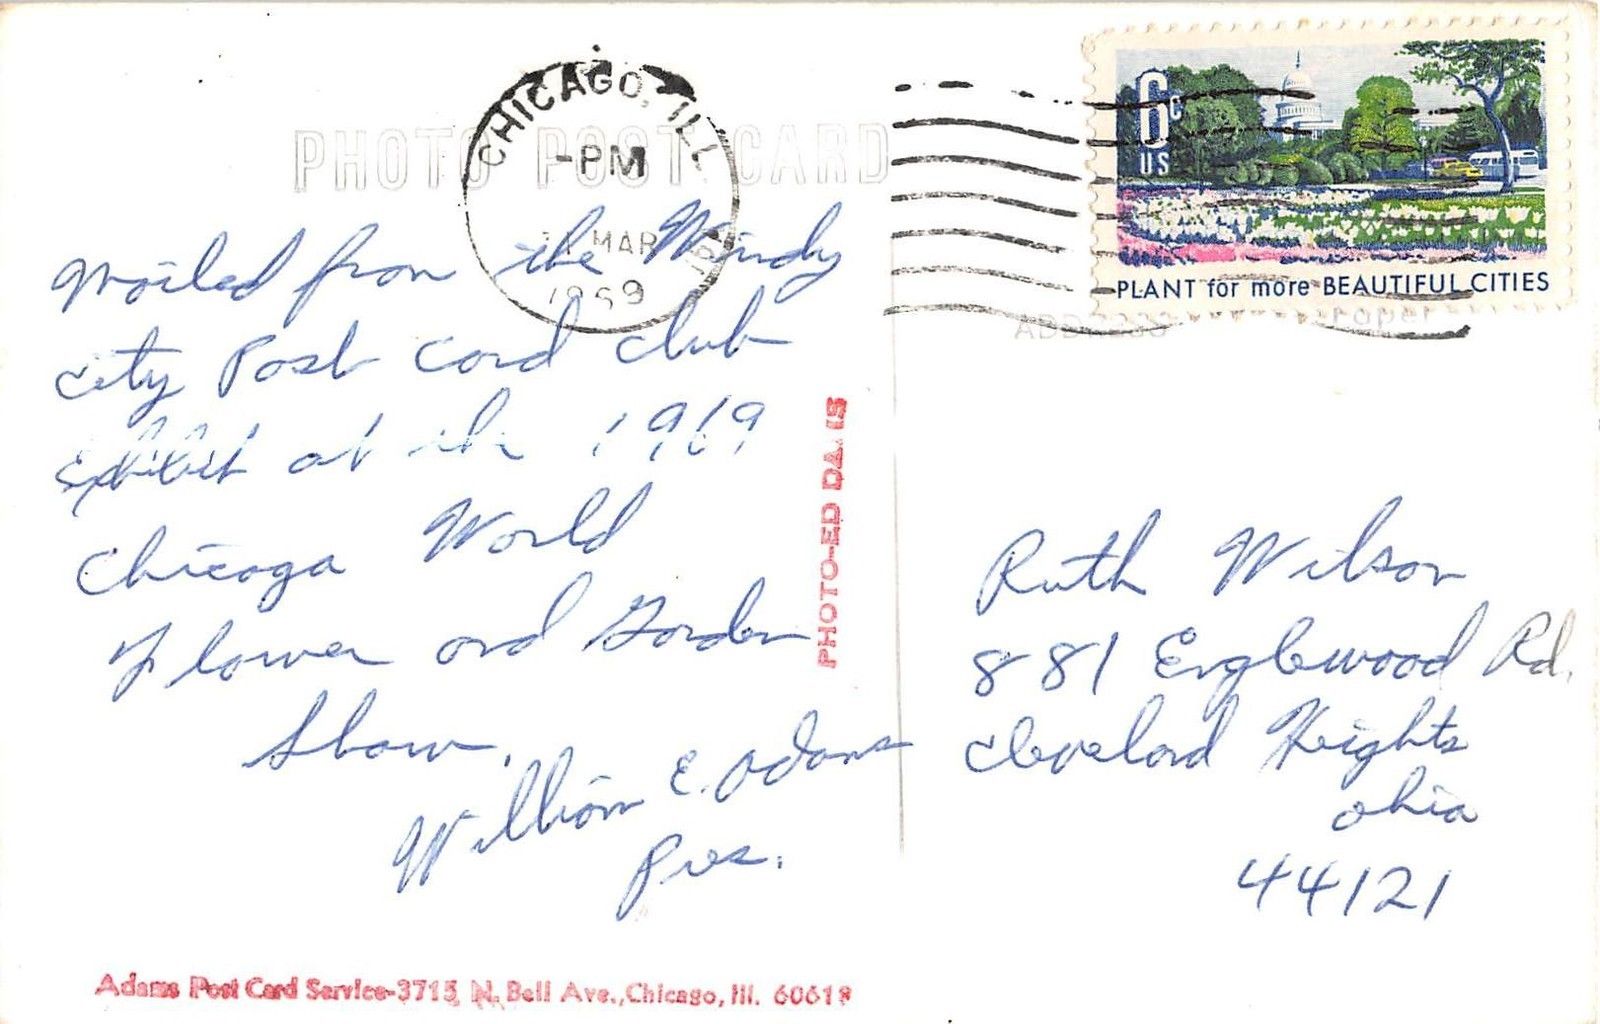 PHOTO POST CARD
CHICAGO, ILL
-PM
MAR
1969
6c
US
PLANT for more BEAUTIFUL CITIES
ADDRESS
Mailed from the Windy
City Post Card Club
Exhibit at the 1969
Chicago World
Flower and Garden
Show.
William E. Adams
Pres.
PHOTO-ED
Ruth Wilson
881 Englewood Rd.
Cleveland Heights
Ohio
44121
Adams Post Card Service-3715 N. Bell Ave., Chicago, Ill. 60618